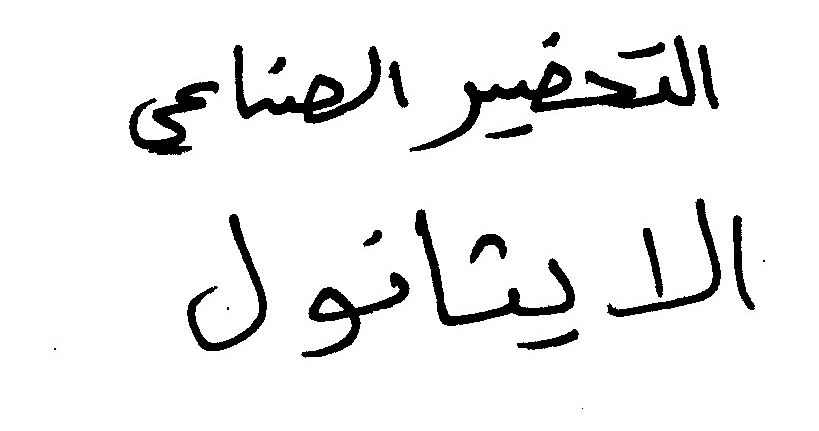 التحضير الصناعي
الايثانول